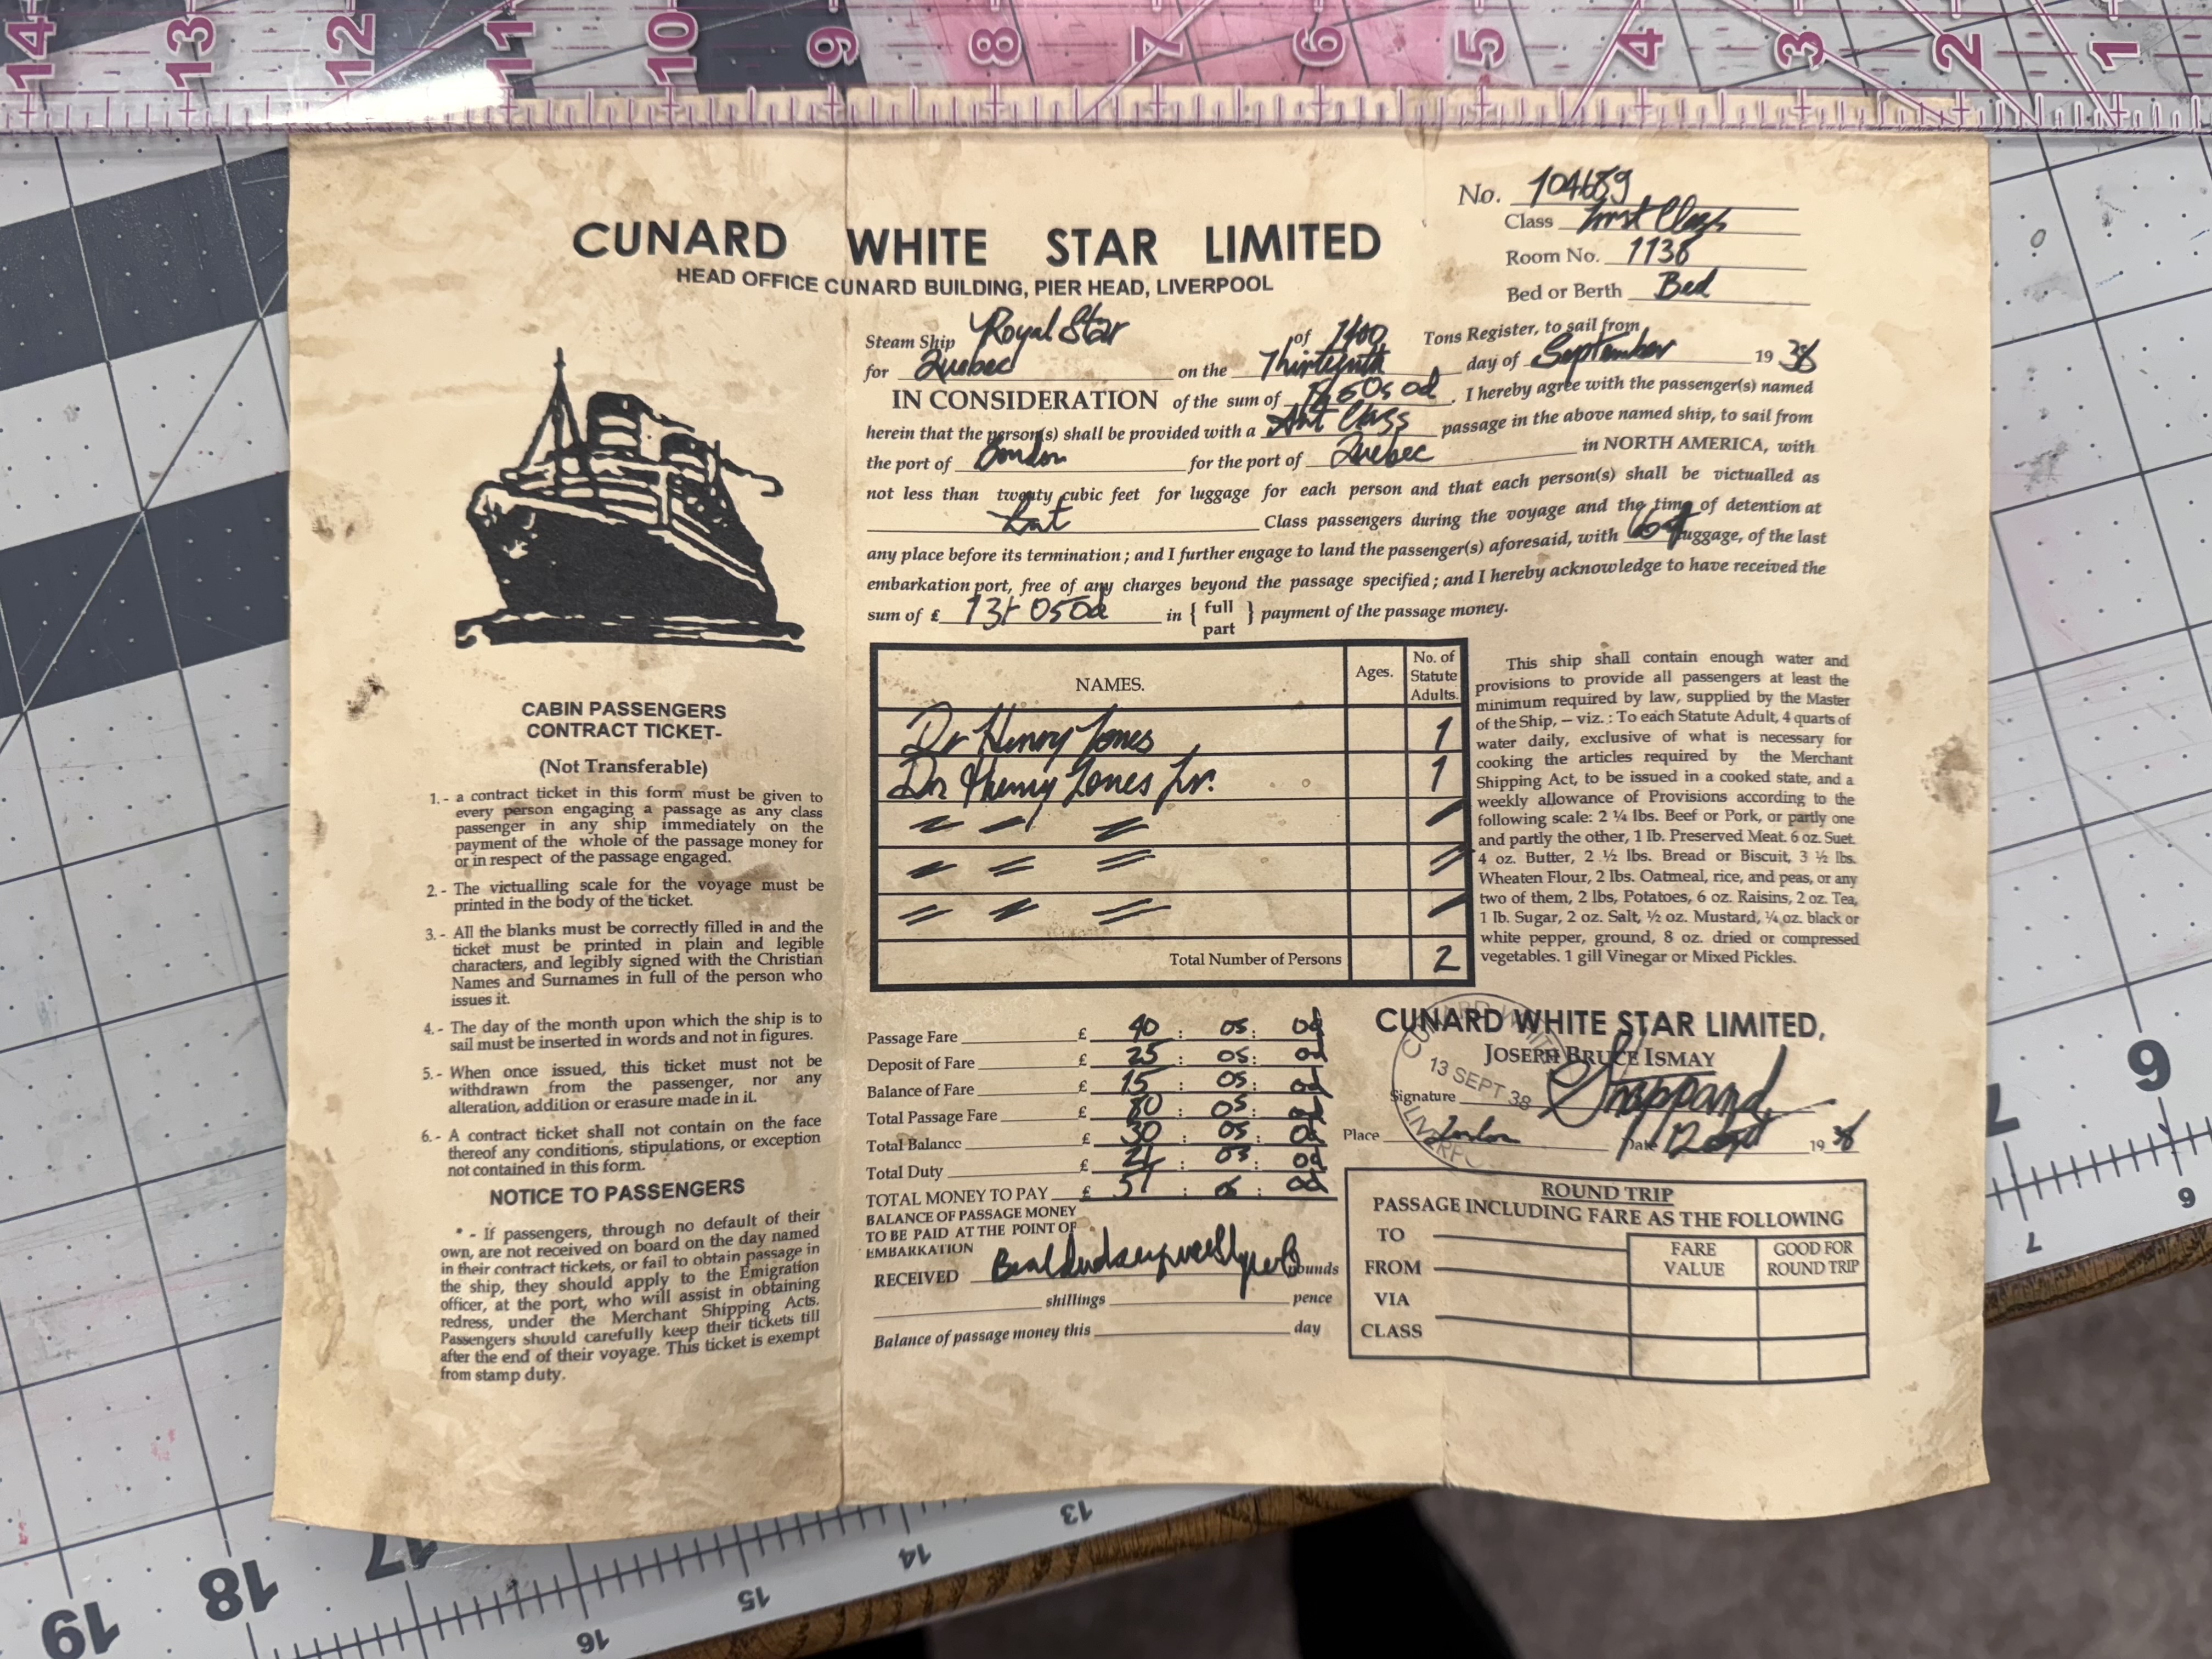 14 13 12 11 10 9 8 7 6 5 4 3 2 1
No. 104689
Class First Class
Room No. 1138
Bed or Berth Bed
CUNARD WHITE STAR LIMITED
HEAD OFFICE CUNARD BUILDING, PIER HEAD, LIVERPOOL
Steam Ship Royal Star of Tons Register, to sail from
for Quebec on the Thirteenth day of September 1938
IN CONSIDERATION of the sum of I hereby agree with the passenger(s) named
herein that the person(s) shall be provided with a Class passage in the above named ship, to sail from
the port of London for the port of Quebec in NORTH AMERICA, with
not less than twenty cubic feet for luggage for each person and that each person(s) shall be victualled as
Class passengers during the voyage and the time of detention at
any place before its termination ; and I further engage to land the passenger(s) aforesaid, with luggage, of the last
embarkation port, free of any charges beyond the passage specified ; and I hereby acknowledge to have received the
sum of £ in { full part } payment of the passage money.
NAMES. Ages. No. of Statute Adults.
Dr Henry Jones 1
Dr Henry Jones Jr. 1
Total Number of Persons 2
This ship shall contain enough water and
provisions to provide all passengers at least the
minimum required by law, supplied by the Master
of the Ship, – viz. : To each Statute Adult, 4 quarts of
water daily, exclusive of what is necessary for
cooking the articles required by the Merchant
Shipping Act, to be issued in a cooked state, and a
weekly allowance of Provisions according to the
following scale: 2 ¼ lbs. Beef or Pork, or partly one
and partly the other, 1 lb. Preserved Meat. 6 oz. Suet.
4 oz. Butter, 2 ½ lbs. Bread or Biscuit, 3 ½ lbs.
Wheaten Flour, 2 lbs. Oatmeal, rice, and peas, or any
two of them, 2 lbs, Potatoes, 6 oz. Raisins, 2 oz. Tea,
1 lb. Sugar, 2 oz. Salt, ½ oz. Mustard, ¼ oz. black or
white pepper, ground, 8 oz. dried or compressed
vegetables. 1 gill Vinegar or Mixed Pickles.
CABIN PASSENGERS
CONTRACT TICKET-
(Not Transferable)
1.- a contract ticket in this form must be given to
every person engaging a passage as any class
passenger in any ship immediately on the
payment of the whole of the passage money for
or in respect of the passage engaged.
2.- The victualling scale for the voyage must be
printed in the body of the ticket.
3.- All the blanks must be correctly filled in and the
ticket must be printed in plain and legible
characters, and legibly signed with the Christian
Names and Surnames in full of the person who
issues it.
4.- The day of the month upon which the ship is to
sail must be inserted in words and not in figures.
5.- When once issued, this ticket must not be
withdrawn from the passenger, nor any
alteration, addition or erasure made in it.
6.- A contract ticket shall not contain on the face
thereof any conditions, stipulations, or exception
not contained in this form.
NOTICE TO PASSENGERS
* - If passengers, through no default of their
own, are not received on board on the day named
in their contract tickets, or fail to obtain passage in
the ship, they should apply to the Emigration
officer, at the port, who will assist in obtaining
redress, under the Merchant Shipping Acts.
Passengers should carefully keep their tickets till
after the end of their voyage. This ticket is exempt
from stamp duty.
Passage Fare £ 40 : 0s : 0d
Deposit of Fare £ 25 : 0s : 0d
Balance of Fare £ 15 : 0s : 0d
Total Passage Fare £ 80 : 0s : 0d
Total Balance £ 30 : 0s : 0d
Total Duty £ 21 : 0s : 0d
TOTAL MONEY TO PAY £ 51 : 0s : 0d
BALANCE OF PASSAGE MONEY
TO BE PAID AT THE POINT OF
EMBARKATION
RECEIVED pounds
shillings pence
Balance of passage money this day
CUNARD WHITE STAR LIMITED,
JOSEPH BRUCE ISMAY
Signature
Place London Date 12 Sept 1938
CUNARD WHITE
13 SEPT 38
LIVERPO
ROUND TRIP
PASSAGE INCLUDING FARE AS THE FOLLOWING
TO
FROM
VIA
CLASS
FARE VALUE
GOOD FOR ROUND TRIP
19 18 17 16 15 14 13
7 6
7 6